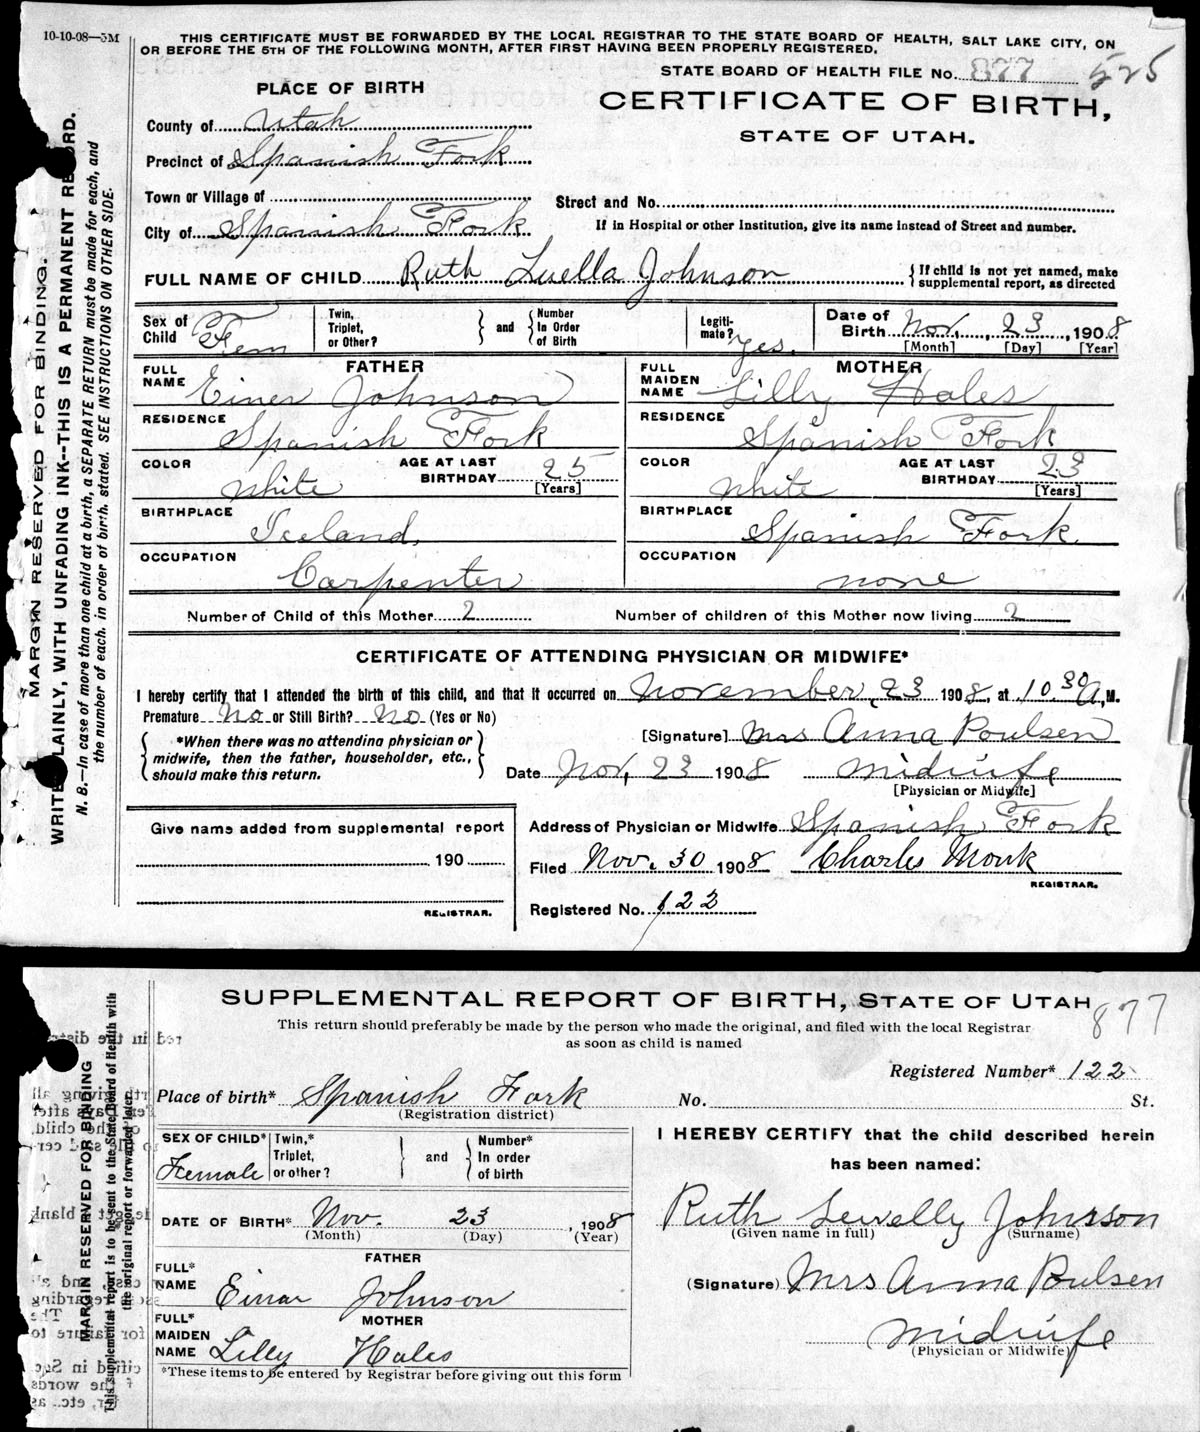 10-10-08—3M
THIS CERTIFICATE MUST BE FORWARDED BY THE LOCAL REGISTRAR TO THE STATE BOARD OF HEALTH, SALT LAKE CITY, ON
OR BEFORE THE 5TH OF THE FOLLOWING MONTH, AFTER FIRST HAVING BEEN PROPERLY REGISTERED.
STATE BOARD OF HEALTH FILE No. 877 525
PLACE OF BIRTH
CERTIFICATE OF BIRTH,
STATE OF UTAH.
County of Utah
Precinct of Spanish Fork
Town or Village of
Street and No.
City of Spanish Fork
If in Hospital or other Institution, give its name instead of Street and number.
FULL NAME OF CHILD Ruth Luella Johnson
{ If child is not yet named, make
supplemental report, as directed
Sex of Child Fem
Twin, Triplet, or Other? } and { Number In Order of Birth
Legiti-mate? Yes.
Date of Birth Nov. 23, 1908
[Month] [Day] [Year]
FATHER
FULL NAME Einer Johnson
RESIDENCE Spanish Fork
COLOR White
AGE AT LAST BIRTHDAY 25
[Years]
BIRTHPLACE Iceland.
OCCUPATION Carpenter
MOTHER
FULL MAIDEN NAME Lilly Hales
RESIDENCE Spanish Fork
COLOR White
AGE AT LAST BIRTHDAY 23
[Years]
BIRTHPLACE Spanish Fork
OCCUPATION none
Number of Child of this Mother 2
Number of children of this Mother now living 2
CERTIFICATE OF ATTENDING PHYSICIAN OR MIDWIFE*
I hereby certify that I attended the birth of this child, and that it occurred on November 23 1908, at 10.30 A, M.
Premature No or Still Birth? No (Yes or No)
{ *When there was no attending physician or
midwife, then the father, householder, etc.,
should make this return. }
[Signature] Mrs Anna Poulsen
Date Nov, 23 1908 Midwife
[Physician or Midwife]
Address of Physician or Midwife Spanish Fork
Filed Nov. 30 1908 Charles Monk
REGISTRAR.
Registered No. 122
Give name added from supplemental report
190
REGISTRAR.
MARGIN RESERVED FOR BINDING.
WRITE PLAINLY, WITH UNFADING INK--THIS IS A PERMANENT RECORD.
N. B.—In case of more than one child at a birth, a SEPARATE RETURN must be made for each, and
the number of each, in order of birth, stated. SEE INSTRUCTIONS ON OTHER SIDE.
SUPPLEMENTAL REPORT OF BIRTH, STATE OF UTAH 877
This return should preferably be made by the person who made the original, and filed with the local Registrar
as soon as child is named
Registered Number* 122
Place of birth* Spanish Fork No. St.
(Registration district)
SEX OF CHILD* Female
Twin,* Triplet, or other? } and { Number* In order of birth
DATE OF BIRTH* Nov. 23, 1908
(Month) (Day) (Year)
FATHER
FULL* NAME Einar Johnson
MOTHER
FULL* MAIDEN NAME Lilly Hales
*These items to be entered by Registrar before giving out this form
I HEREBY CERTIFY that the child described herein
has been named:
Ruth Lewelly Johnson
(Given name in full) (Surname)
(Signature) Mrs Anna Poulsen
Midwife
(Physician or Midwife)
MARGIN RESERVED FOR BINDING
This supplemental report is to be sent to the State Board of Health with
the original report or forwarded later.